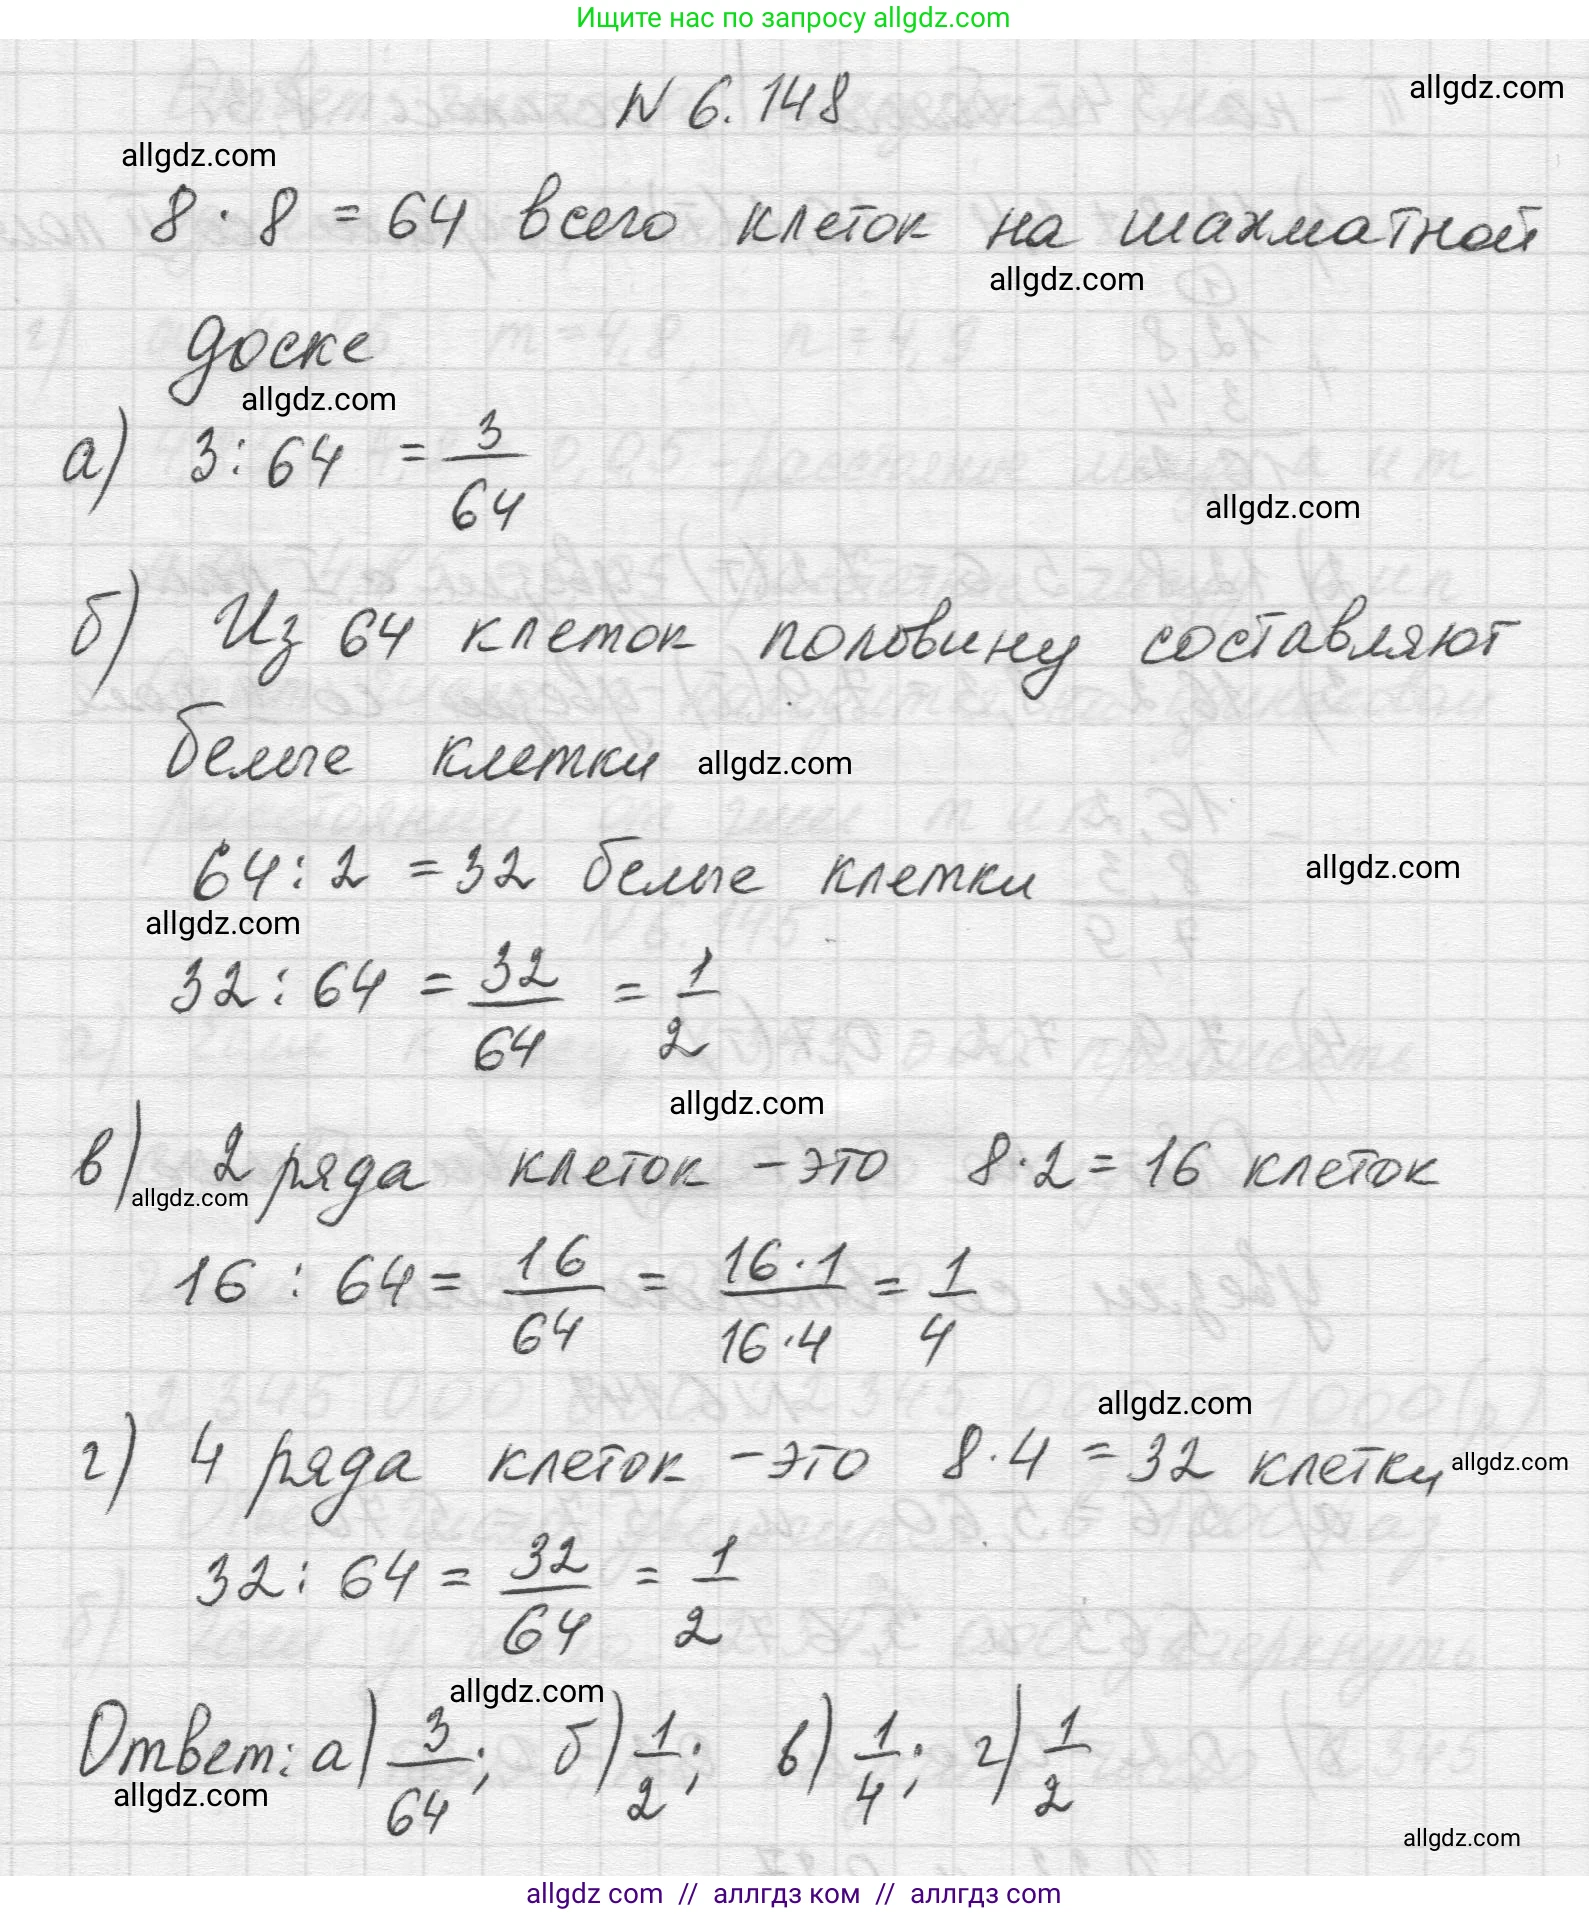 Ищите нас по запросу allgdz.com
N 6.148
allgdz.com
allgdz.com
8 · 8 = 64 всего клеток на шахматной
allgdz.com
доске
allgdz.com
а) 3 : 64 = 3/64
allgdz.com
б) Из 64 клеток половину составляют
белые клетки
allgdz.com
64 : 2 = 32 белые клетки
allgdz.com
allgdz.com
32 : 64 = 32/64 = 1/2
allgdz.com
в) 2 ряда клеток - это 8 · 2 = 16 клеток
allgdz.com
16 : 64 = 16/64 = 16·1/16·4 = 1/4
allgdz.com
г) 4 ряда клеток - это 8 · 4 = 32 клетки
allgdz.com
32 : 64 = 32/64 = 1/2
allgdz.com
Ответ: а) 3/64; б) 1/2; в) 1/4; г) 1/2
allgdz.com
allgdz.com
allgdz com // аллгдз ком // аллгдз com